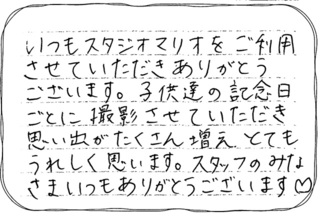 いつもスタジオマリオをご利用
させていただきありがとう
ございます。子供達の記念日
ごとに撮影させていただき
思い出がたくさん増え とても
うれしく思います。スタッフのみな
さまいつもありがとうございます♡